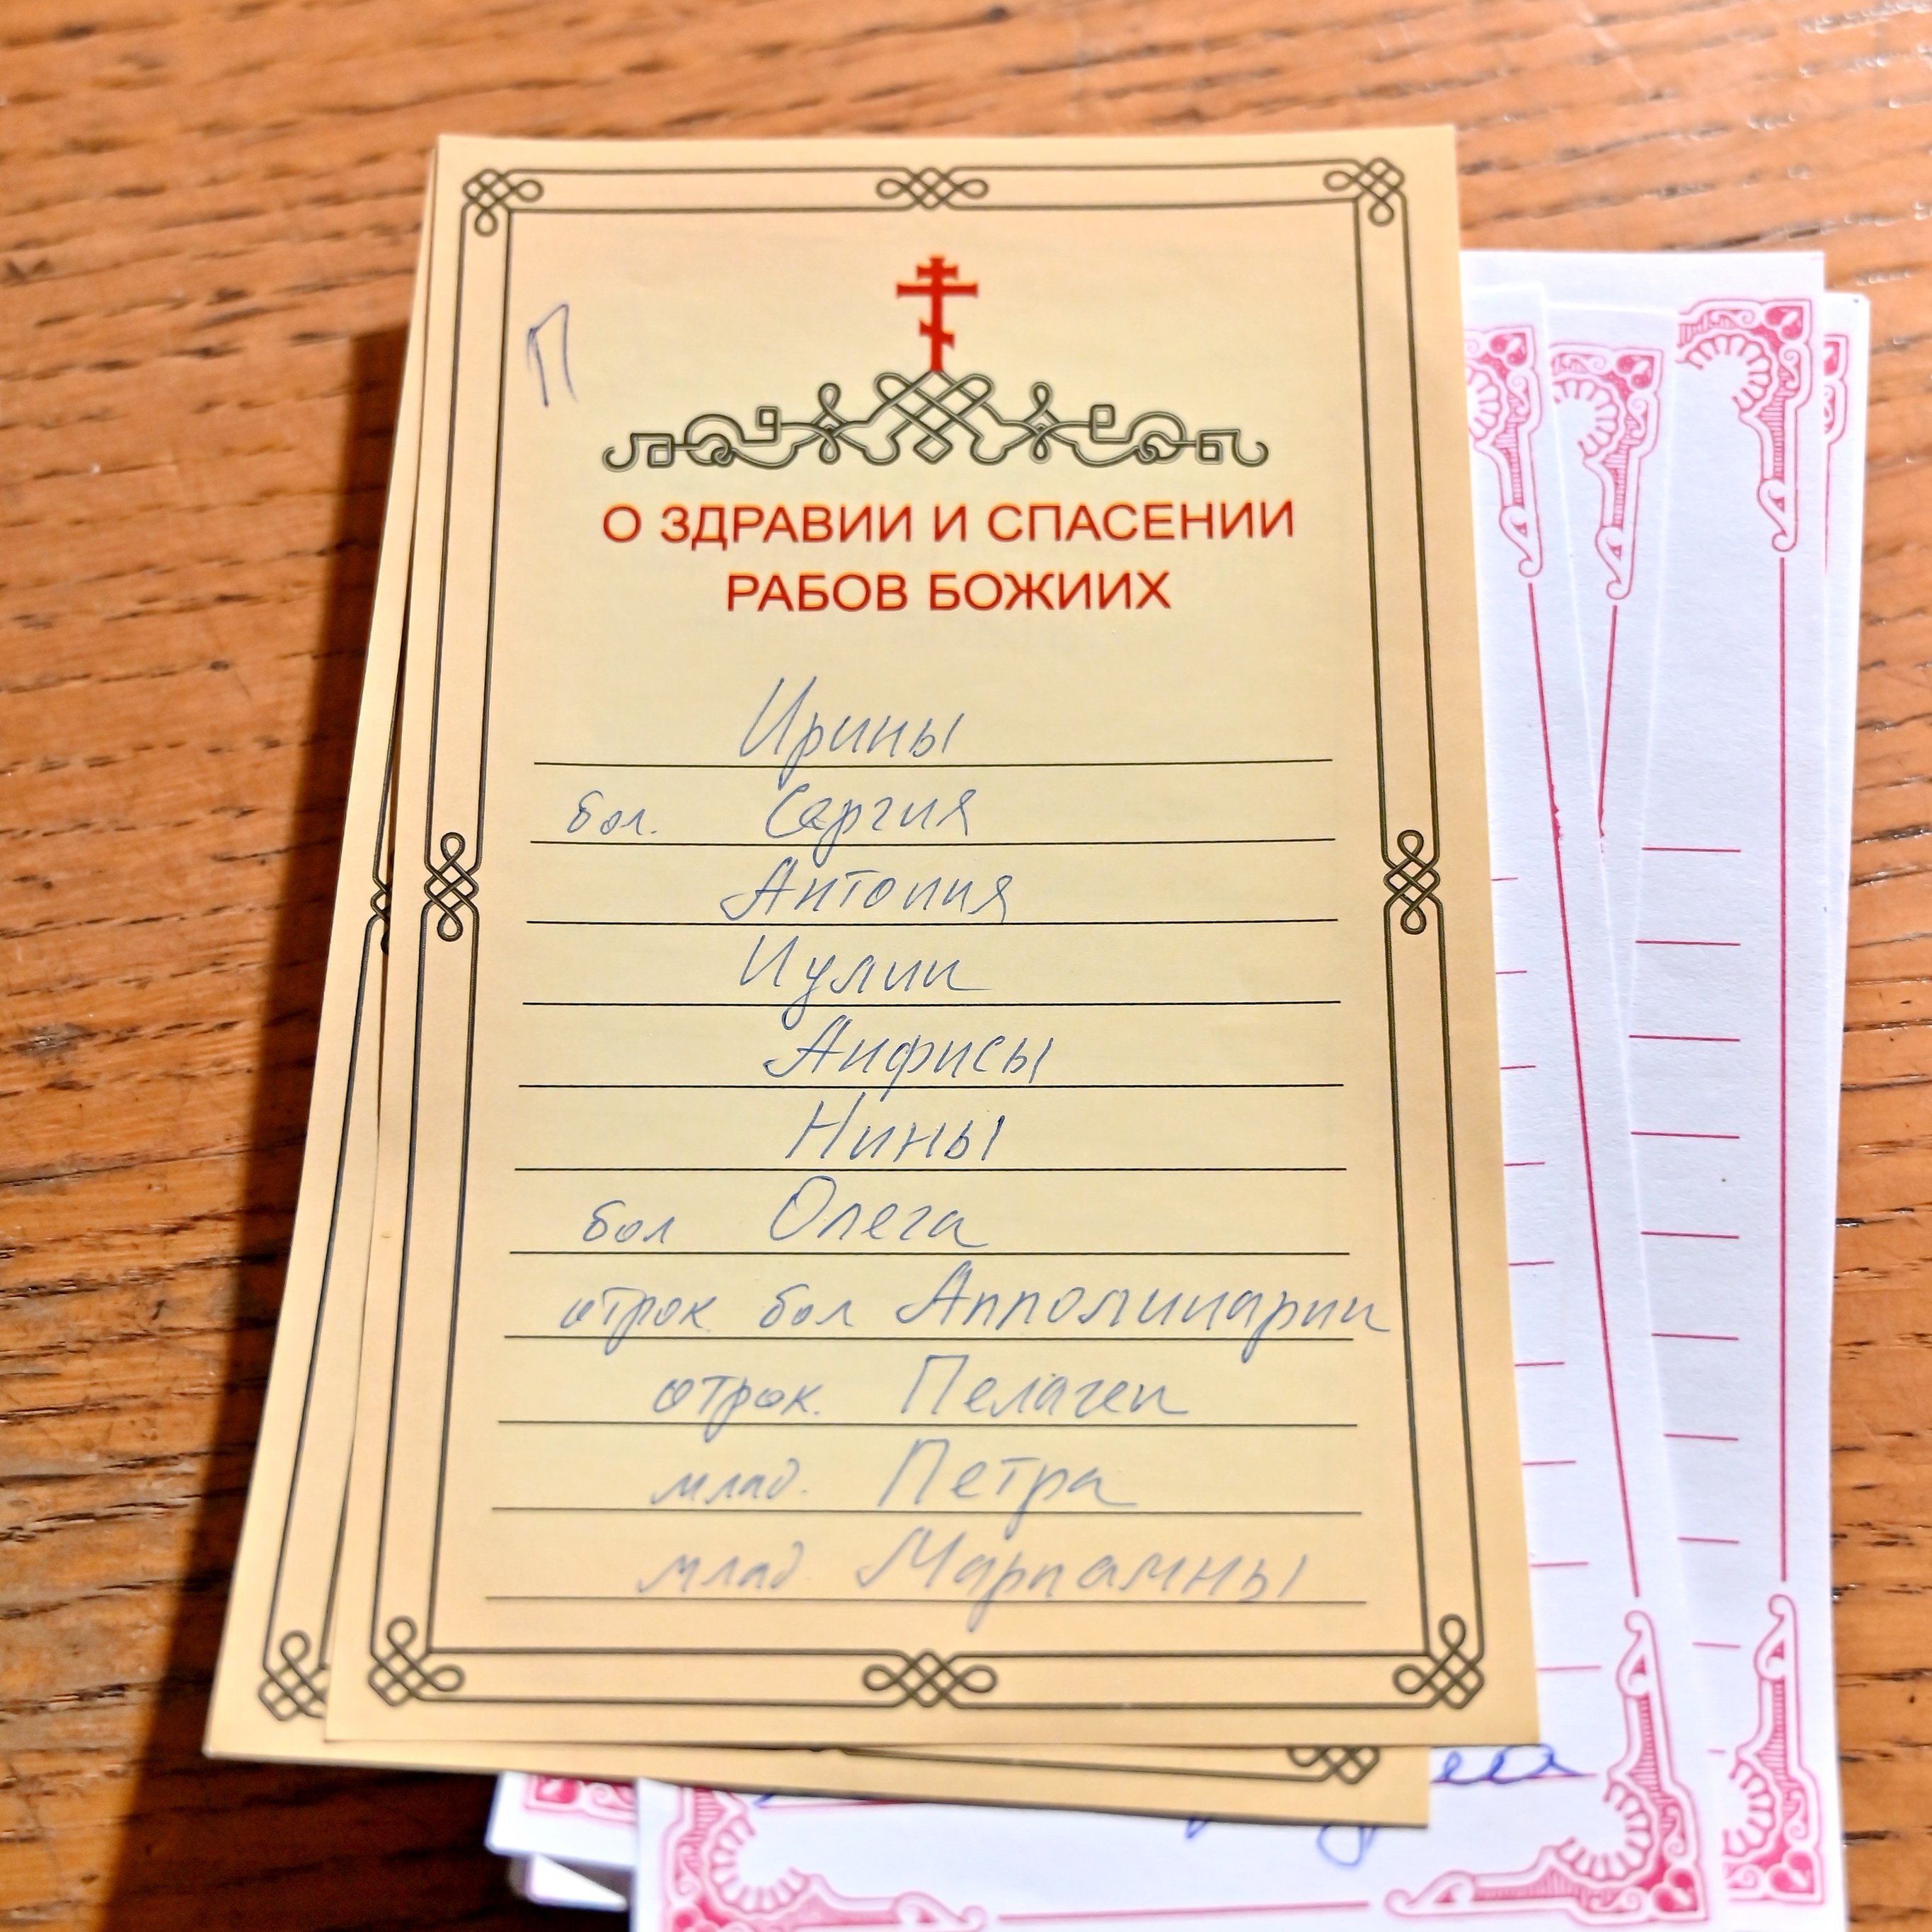 П
О ЗДРАВИИ И СПАСЕНИИ
РАБОВ БОЖИИХ
Ирины
бол. Сергия
Антония
Иулии
Анфисы
Нины
бол Олега
отрок бол Апполинарии
отрок. Пелагеи
млад. Петра
млад Мариамны